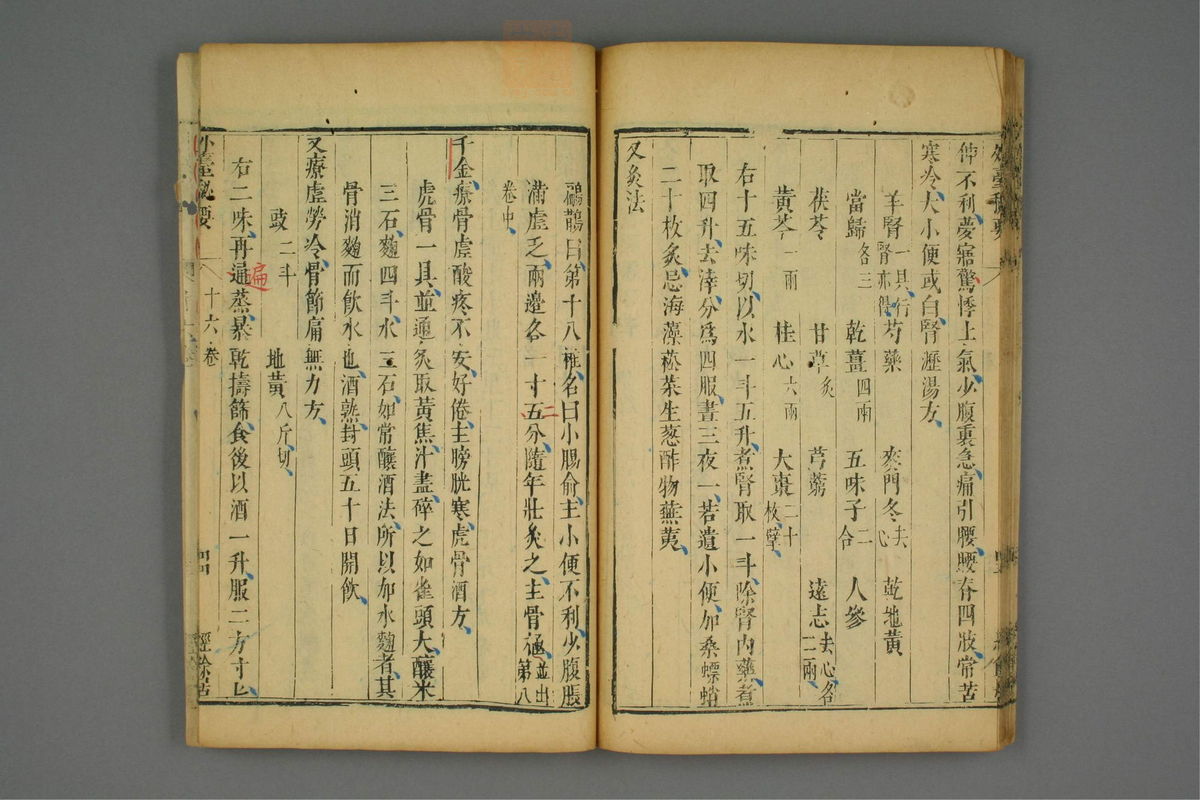 伸不利夢寤驚悸上氣少腹裏急痛引腰腰脊四肢常苦
寒冷大小便或白腎瀝湯方
羊腎一具行腎亦得 芍藥 麥門冬去心 乾地黃
當歸各三 乾薑四兩 五味子二合 人參
茯苓 甘草炙 芎藭 遠志去心各二兩
黃芩一兩 桂心六兩 大棗二十枚擘
右十五味切以水一斗五升煮腎取一斗除腎內藥煮
取四升去滓分爲四服晝三夜一若遺小便加桑螵蛸
二十枚炙忌海藻菘菜生葱酢物蕪荑
又灸法
扁鵲曰第十八椎名曰小腸俞主小便不利少腹脹
滿虛乏兩邊各一寸五分隨年壯灸之主骨極並出第八
卷中
二
千金療骨虛酸疼不安好倦主膀胱寒虎骨酒方
虎骨一具並通炙取黃焦汁盡碎之如雀頭大釀米
三石麴四斗水三石如常釀酒法所以加水麴者其
骨消麴而飲水也酒熟封頭五十日開飲
又療虛勞冷骨節痛無力方
豉二斗 地黃八斤切
右二味再遍蒸暴乾擣篩食後以酒一升服二方寸匕
遍
外臺秘要 十六卷 四 經餘居